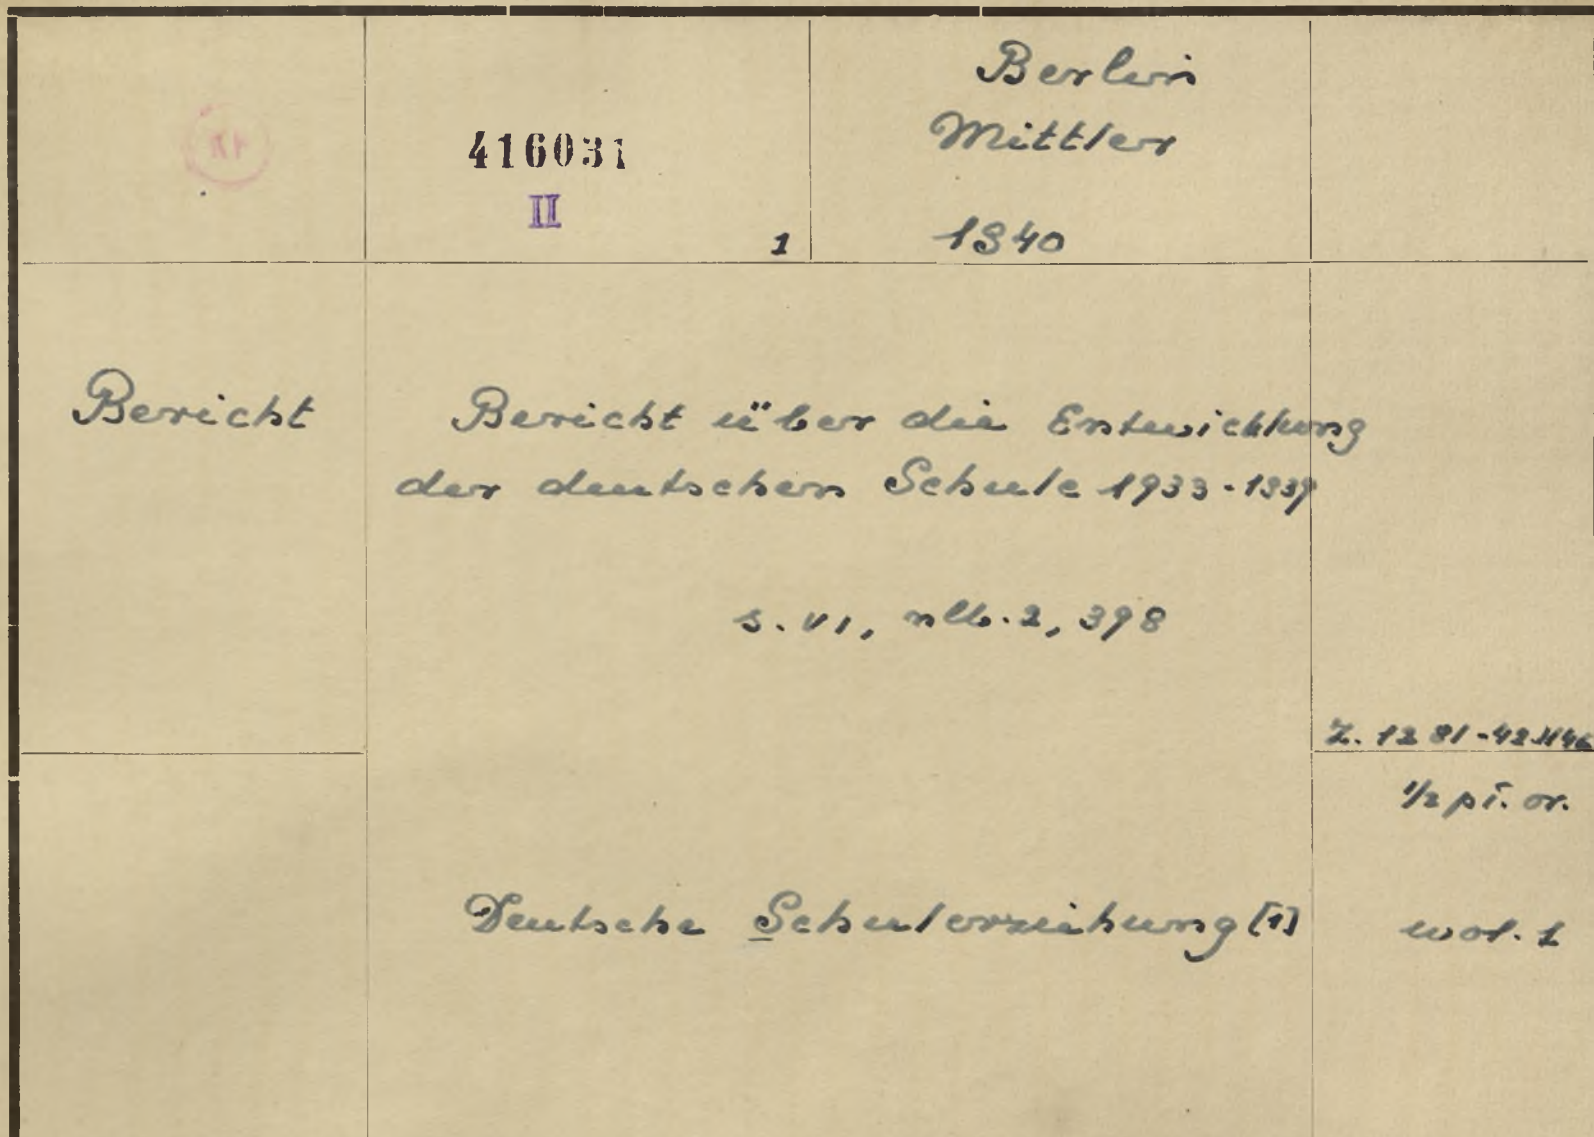 416031
II
1
Berlin
Mittler
1940
Bericht
Bericht über die Entwicklung
der deutschen Schule 1933-1939
s. VI, nlb. 2, 398
Z. 1281-42/46
1/2 pł. or.
Deutsche Schulerziehung [1]
wol. 1